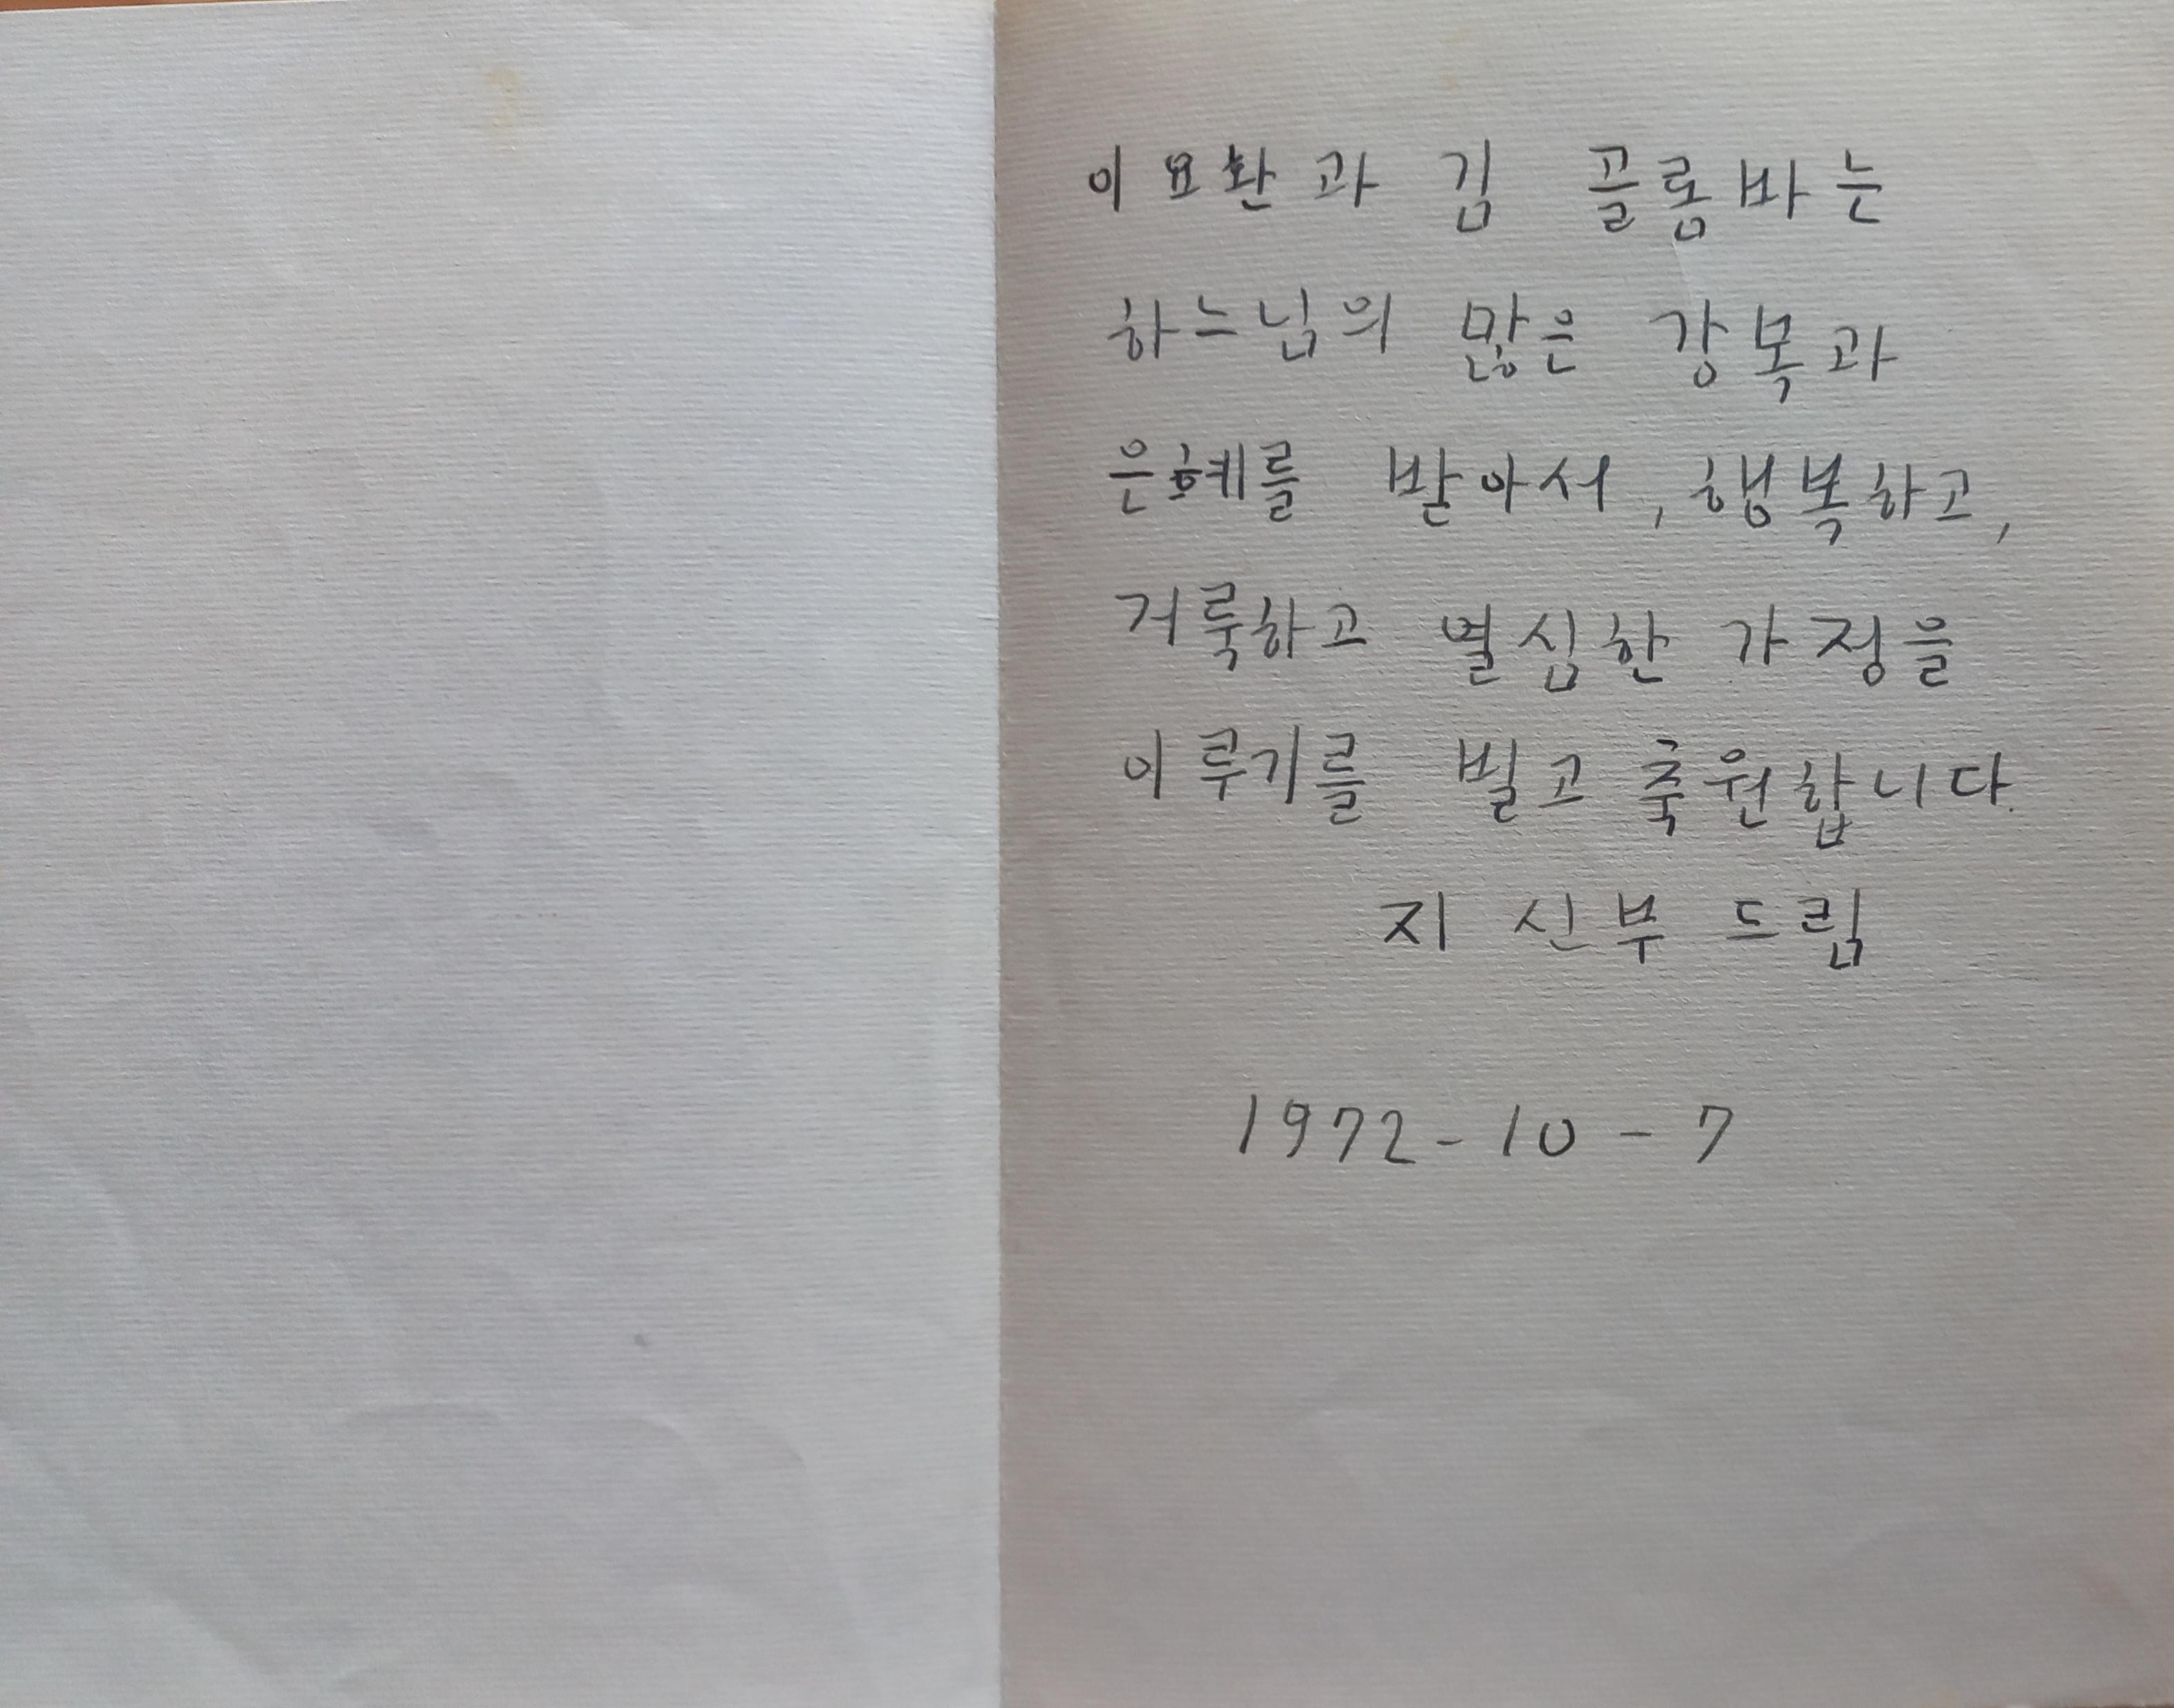 이요환과 김 골롬바는
하느님의 많은 강복과
은혜를 받아서, 행복하고,
거룩하고 열심한 가정을
이루기를 빌고 축원합니다.
지 신부 드림
1972-10-7